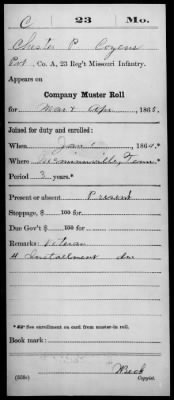 C 23 Mo.
Chester P. Cozens
Pvt., Co. A, 23 Reg't Missouri Infantry.
Appears on
Company Muster Roll
for Mar & Apr, 1865.
Joined for duty and enrolled:
When Jan 1864.*
Where McMinnville, Tenn
Period 3 years.*
Present or absent Present
Stoppage, $ 100 for
Due Gov't $ 100 for
Remarks: Veteran
4 Installment due
*See enrollment on card from muster-in roll.
Book mark:
(358c) Copyist.